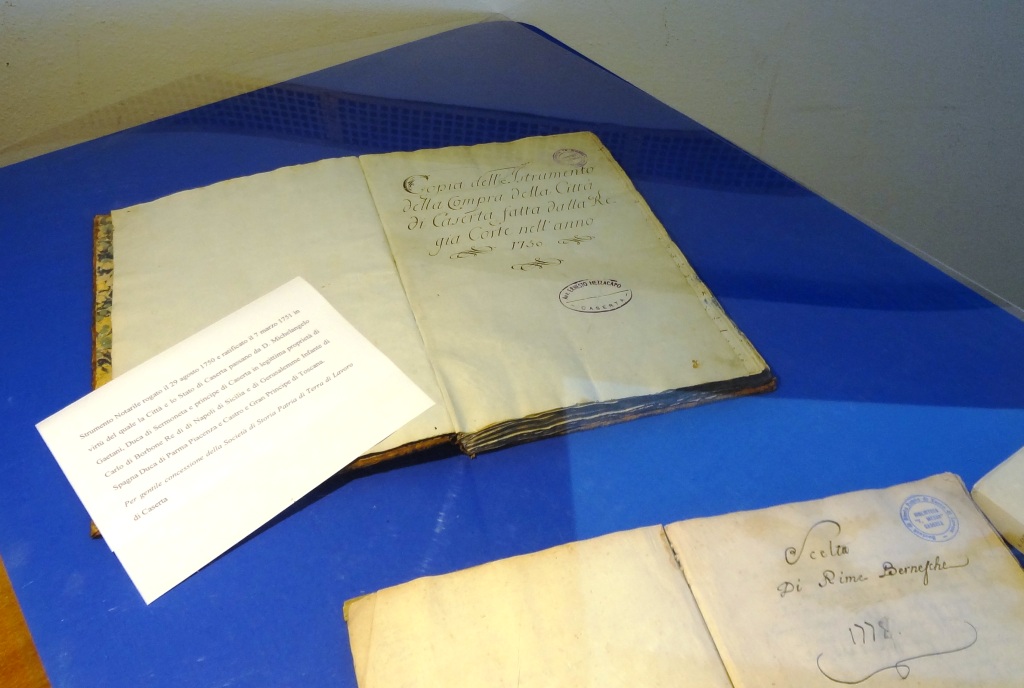 Copia dell'Istrumento
della Compra della Città
di Caserta fatta dalla Re-
gia Corte nell'anno
1750
CASERTA
Strumento Notarile rogato il 29 agosto 1750 e ratificato il 7 marzo 1751 in
virtù del quale la Città e lo Stato di Caserta passano da D. Michelangelo
Gaetani, Duca di Sermoneta e principe di Caserta in legittima proprietà di
Carlo di Borbone Re di di Napoli di Sicilia e di Gerusalemme Infante di
Spagna Duca di Parma Piacenza e Castro e Gran Principe di Toscana.
Per gentile concessione della Società di Storia Patria di Terra di Lavoro
di Caserta
Scelta
Di Rime Bernesche
1778
BIBLIOTECA
CASERTA